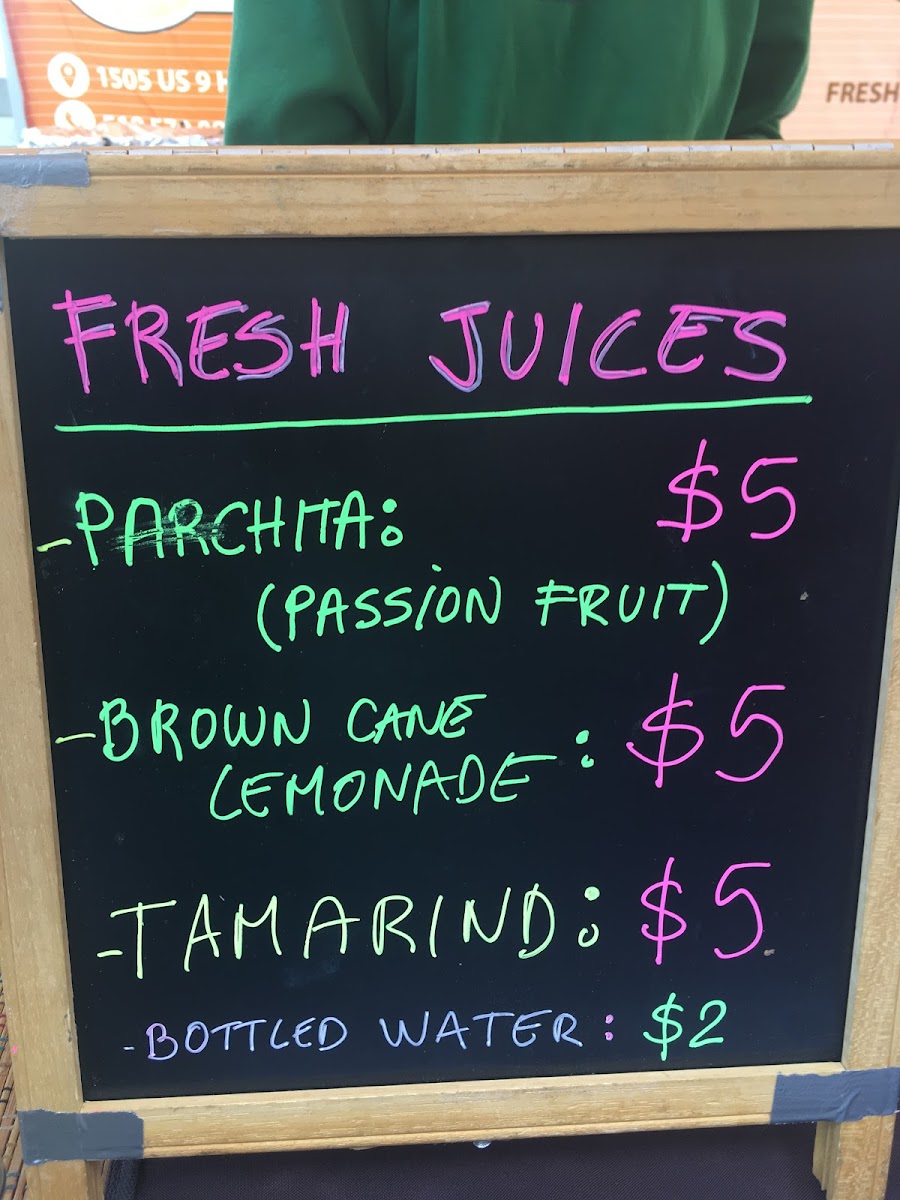 1505 US 9 H
FRESH
FRESH JUICES
-PARCHITA: $5
(PASSION FRUIT)
-BROWN CANE
LEMONADE: $5
-TAMARIND: $5
-BOTTLED WATER: $2